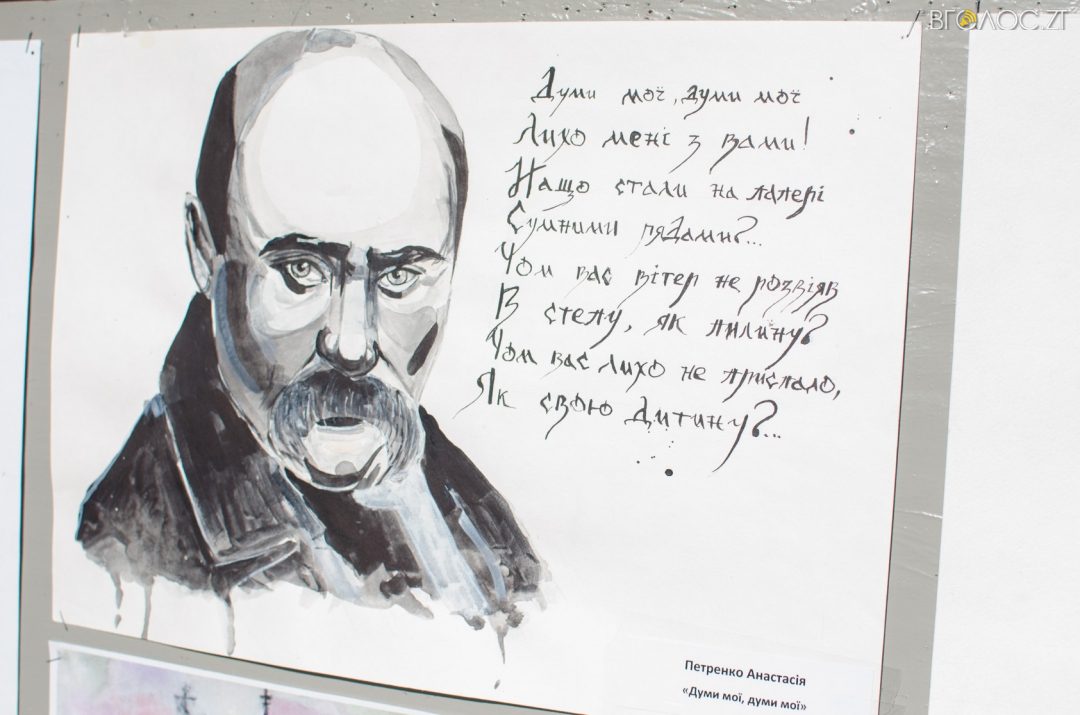 .ВГОЛОС.ZT
Думи мої, думи мої
Лихо мені з вами!
Нащо стали на папері
Сумними рядами?...
Чом вас вітер не розвіяв
В степу, як пилину?
Чом вас лихо не приспало,
Як свою дитину?...
Петренко Анастасія
«Думи мої, думи мої»